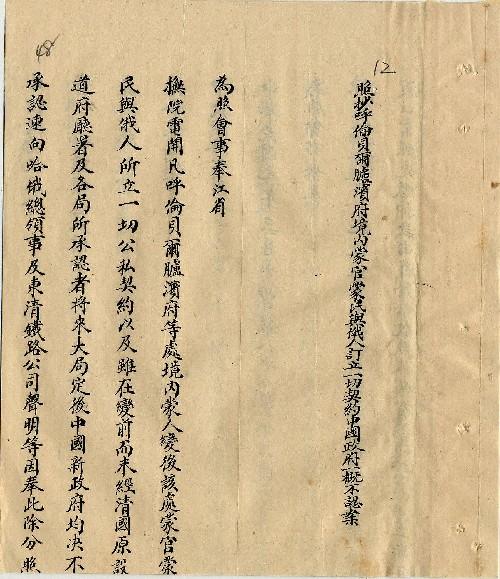 12
照抄呼倫貝爾臚濱府境內蒙官蒙民與俄人訂立一切契約中國政府概不認案
為照會事奉江省
撫院電開凡呼倫貝爾臚濱府等處境內蒙人變後該處蒙官蒙
民與俄人所立一切公私契約以及雖在變前而未經清國原設
道府廳署及各局所承認者將來大局定後中國新政府均決不
承認速向哈俄總領事及東清鐵路公司聲明等因奉此除分照
48